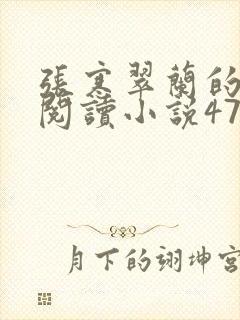 張寒翠蘭的
閱讀小説47
月下的翊坤宮